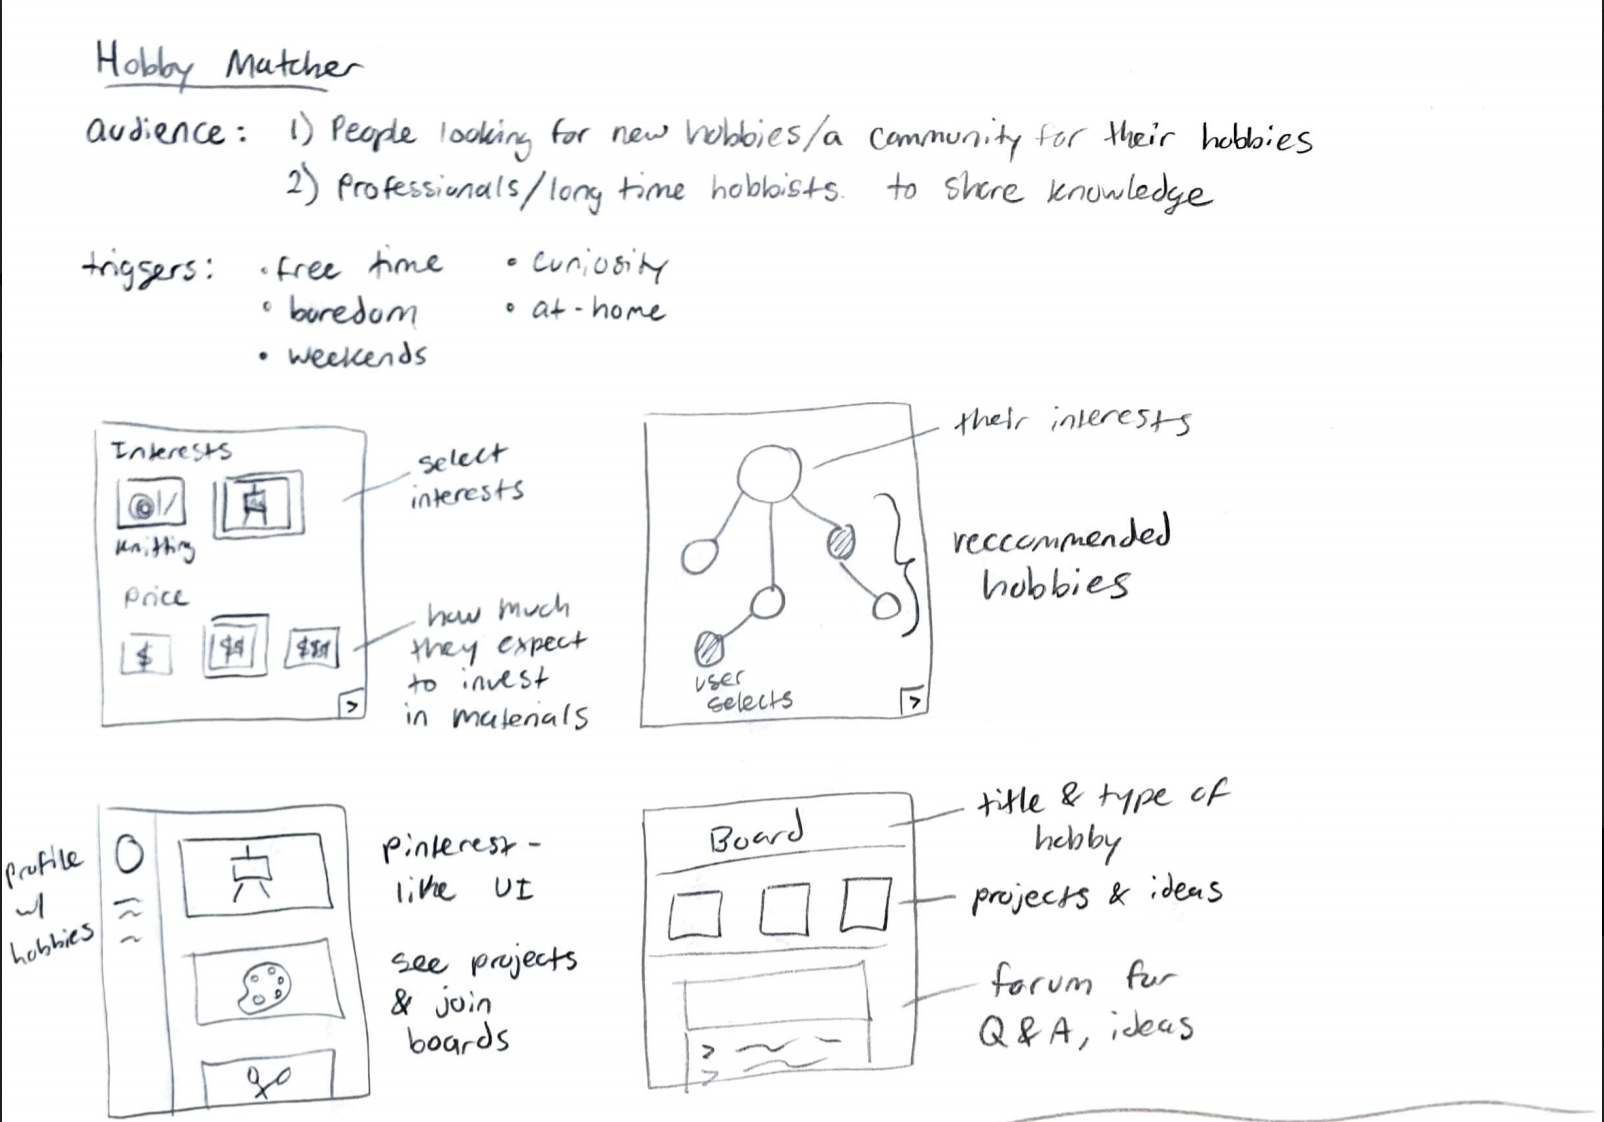 Hobby Matcher
audience: 1) People looking for new hobbies/a community for their hobbies
2) Professionals/long time hobbists. to share knowledge
triggers: • free time • curiosity
• boredom • at-home
• weekends
Interests
Knitting
Price
$ $$ $$$
>
select
interests
how much
they expect
to invest
in materials
their interests
reccommended
hobbies
user
selects
>
profile
w/
hobbies
pinterest-
like UI
see projects
& join
boards
Board
> 
>
title & type of
hobby
projects & ideas
forum for
Q & A, ideas